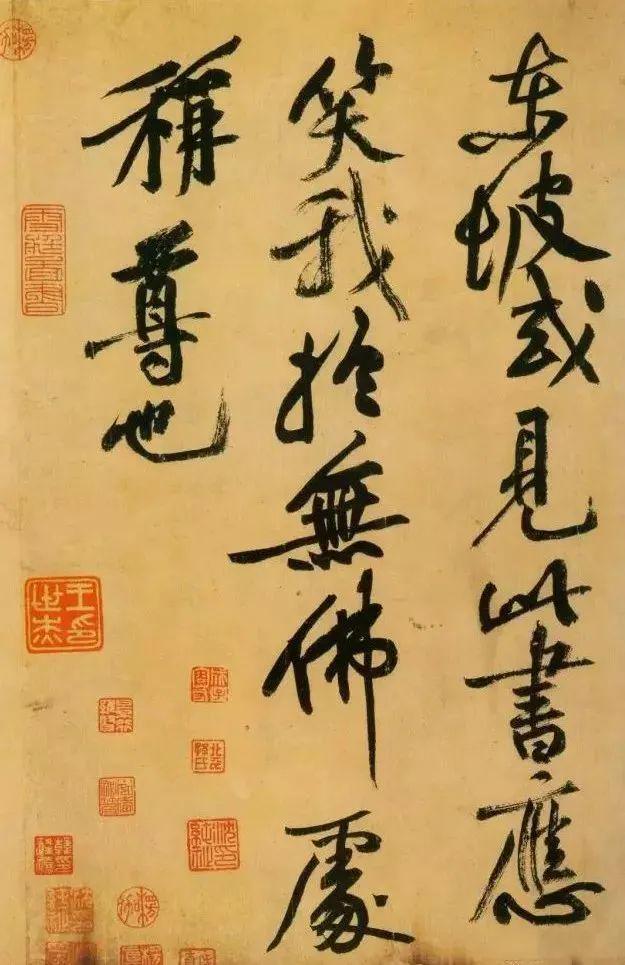 東坡或見此書應
笑我於無佛處
稱尊也
王氏世杰